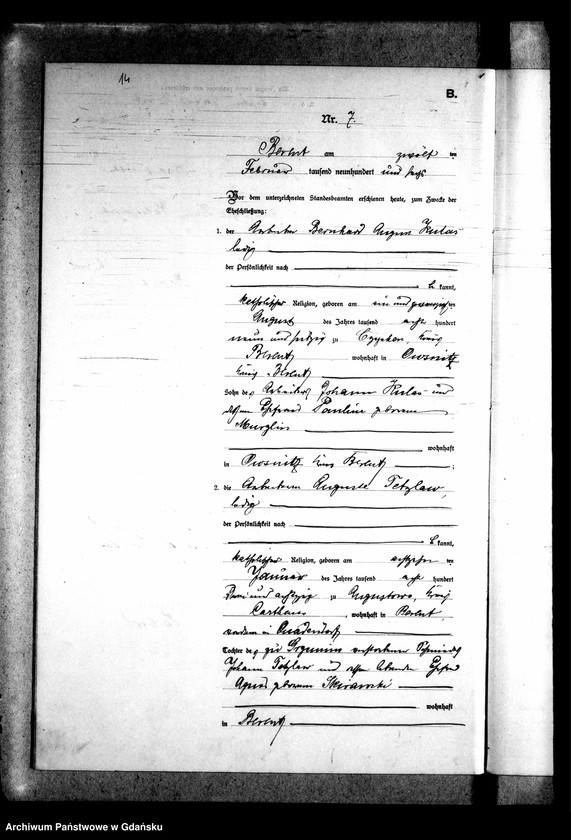 14
B.
Nr. 7.
Berent am zwölf ten
Februar tausend neunhundert und sechs
Vor dem unterzeichneten Standesbeamten erschienen heute, zum Zwecke der
Eheschließung:
1. der Arbeiter Bernhard August Kulas
ledig
der Persönlichkeit nach
be kannt,
katholischer Religion, geboren am ein und zwanzigsten
August des Jahres tausend acht hundert
neun und siebzig zu
Berent wohnhaft in
Kreis Berent
Sohn des Arbeiters Johann Kulas und
dessen Ehefrau Pauline geborene
wohnhaft
in Kreis Berent ;
2. die Arbeiterin Auguste Tetzlaw,
ledig
der Persönlichkeit nach
be kannt,
katholischer Religion, geboren am achtzehn ten
Januar des Jahres tausend acht hundert
drei und achtzig zu Augustowo, Kreis
Carthaus, wohnhaft in Berent,
vordem in
Tochter des zu verstorbenen
Johann Tetzlaw und Ehefrau
Agnes geborenen
wohnhaft
in Berent
Archiwum Państwowe w Gdańsku